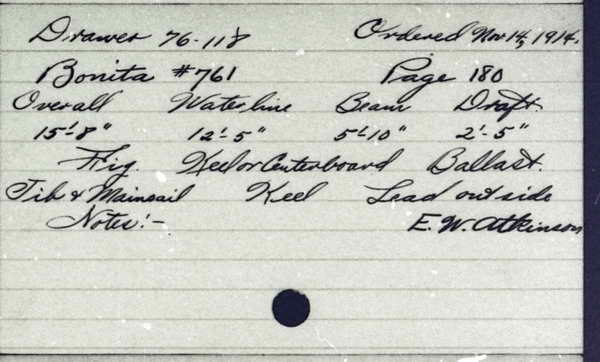 Drawer 76-118 Ordered Nov 14, 1914.
Bonita #761 Page 180
Overall Waterline Beam Draft.
15'-8" 12'-5" 5'-10" 2'-5"
Rig. Keel or Centerboard Ballast.
Jib & Mainsail Keel Lead outside
Notes:- E. W. Atkinson